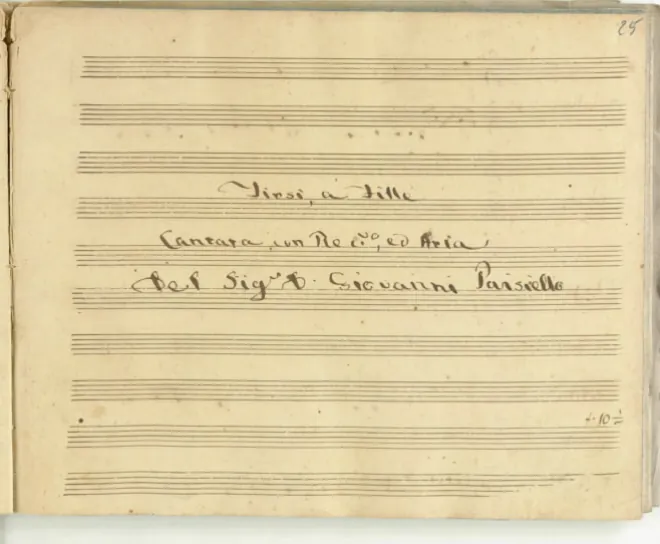 25
Tirsi, a Fille
Cantata con Reci.vo, ed Aria
Del Sig.r D. Giovanni Paisiello